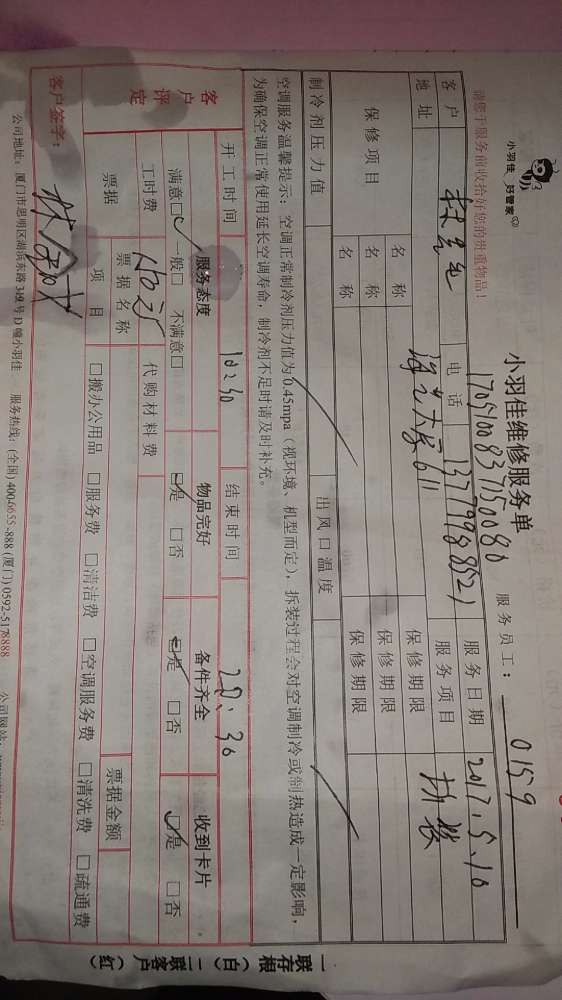 小羽佳 好管家
小羽佳维修服务单
请您于服务前收拾好您的贵重物品!
1705100837150080
服务员工: 0159
客户 电话 13779988521 服务日期 2017.5.10
地址 611 服务项目 拆装
保修项目 名称 保修期限
名称 保修期限
名称 保修期限
制冷剂压力值 出风口温度
空调服务温馨提示:空调正常制冷剂压力值为0.45mpa(视环境、机型而定),拆装过程会对空调制冷或制热造成一定影响,
为确保空调正常使用延长空调寿命,制冷剂不足时请及时补充。
开工时间 结束时间
客户评定 服务态度 物品完好 备件齐全 收到卡片
满意□ 一般□ 不满意□ □是 □否 □是 □否 □是 □否
工时费 代购材料费
票据 票据名称 票据金额
项目 □搬办公用品 □服务费 □清洁费 □空调服务费 □清洗费 □疏通费
客户签字:
公司地址:厦门市思明区湖滨东路 小羽佳 服务热线:(全国)400-6655-888(厦门)0592-5178888 公司网站:
一联存根(白)二联客户(红)